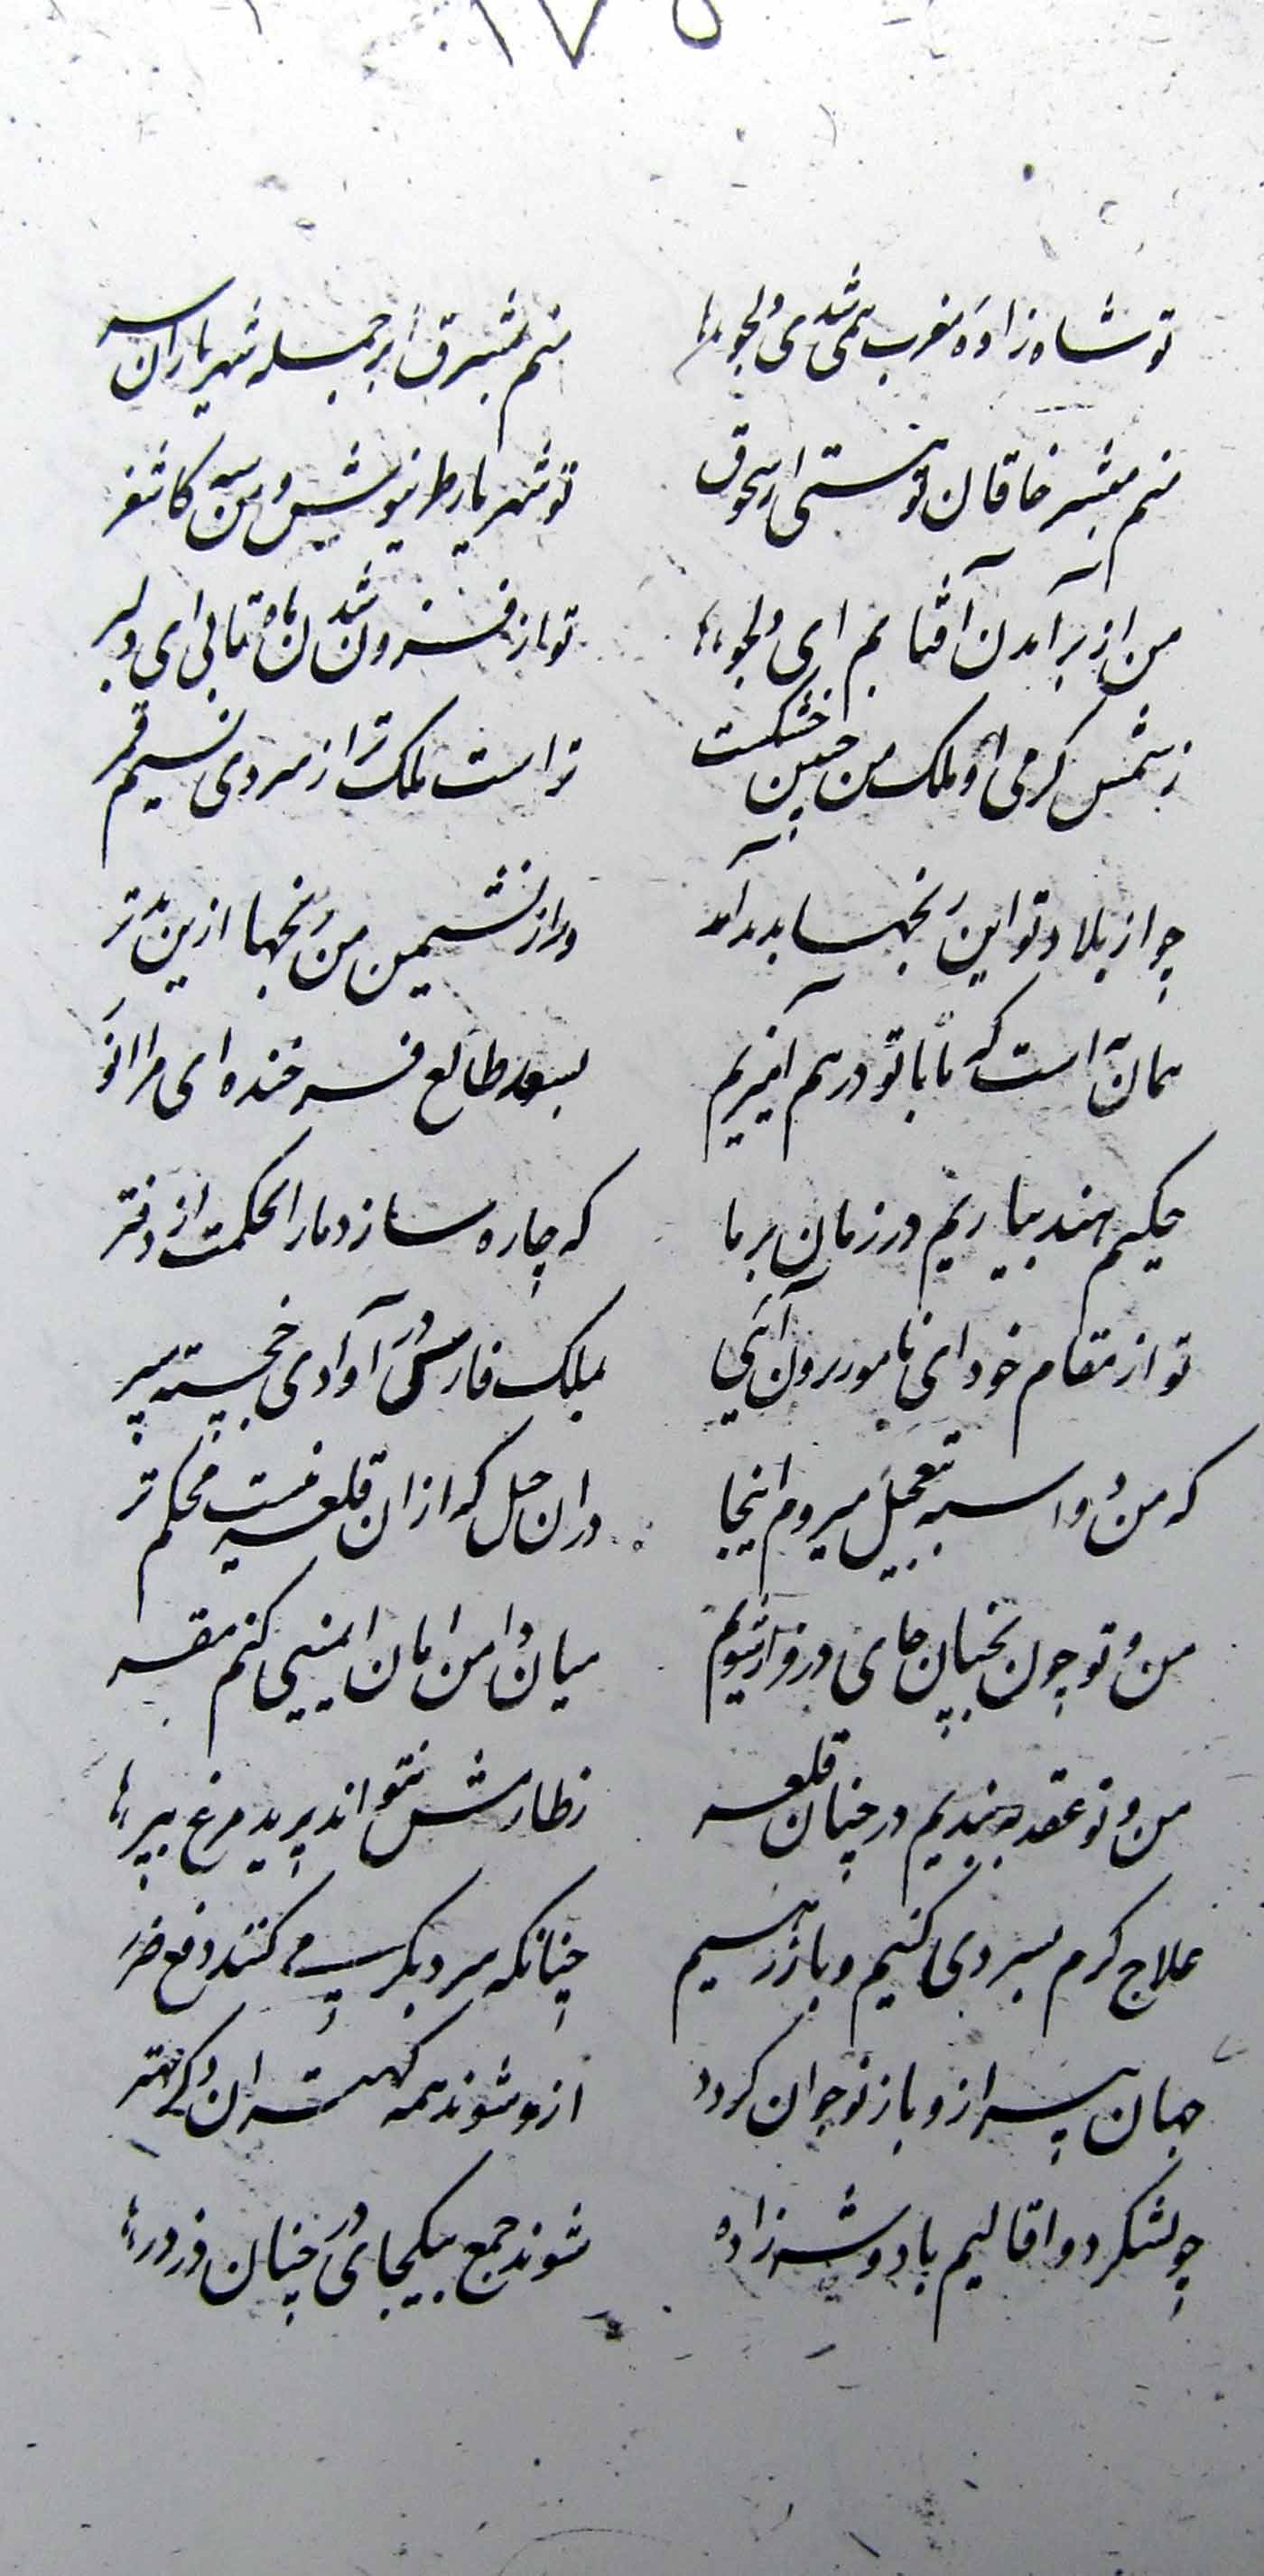 ۱۷۵
تو شاه زاده مغرب شدی دلجو منم بشرق ابر جمله شهریاران سر
منم مبشر خاقان تو هستی از سلجوق تو شهریار طرنیوش و من شه کاشغر
من از برآمدن آفتابم ای دلجو تو از فرو شدن ماه تابی ای دلبر
ز شمس گرمی او ملک من چنین خشکست تر است ملک ترا از سردی نسیم قمر
چو از بلاد تو این رنجها بدید آمد در از نشیمن من رنجها ازین بدتر
همان به است که ما با تو در هم آمیزیم بسعد طالع فرخنده ای مرا انور
حکیم هند بیاریم در زمان بر ما که چاره سازد ما را حکمت از دفتر
تو از مقام خود ای نامور برون آئی بملک فارس در آ وادی خجسته سیر
که من دو اسبه بتعجیل میروم اینجا دران جبل که ازان قلعه نیست محکم تر
من و تو چون بچنان جای در فراز شویم میان دامن امان ایمنی کنم مقر
من و تو عقد ببندیم در چنان قلعه ز طارمش نتواند پرید مرغ بپر
علاج گرم بسردی کنیم و باز رهیم چنانکه سرد بگرمی کنند دفع ضرر
جهان پیر ازو باز نوجوان گردد ازو شوند همه کهتران و گر مهتر
چو لشکر دو اقالیم با دو شه زاده شوند جمع بیکجای در چنان دز در